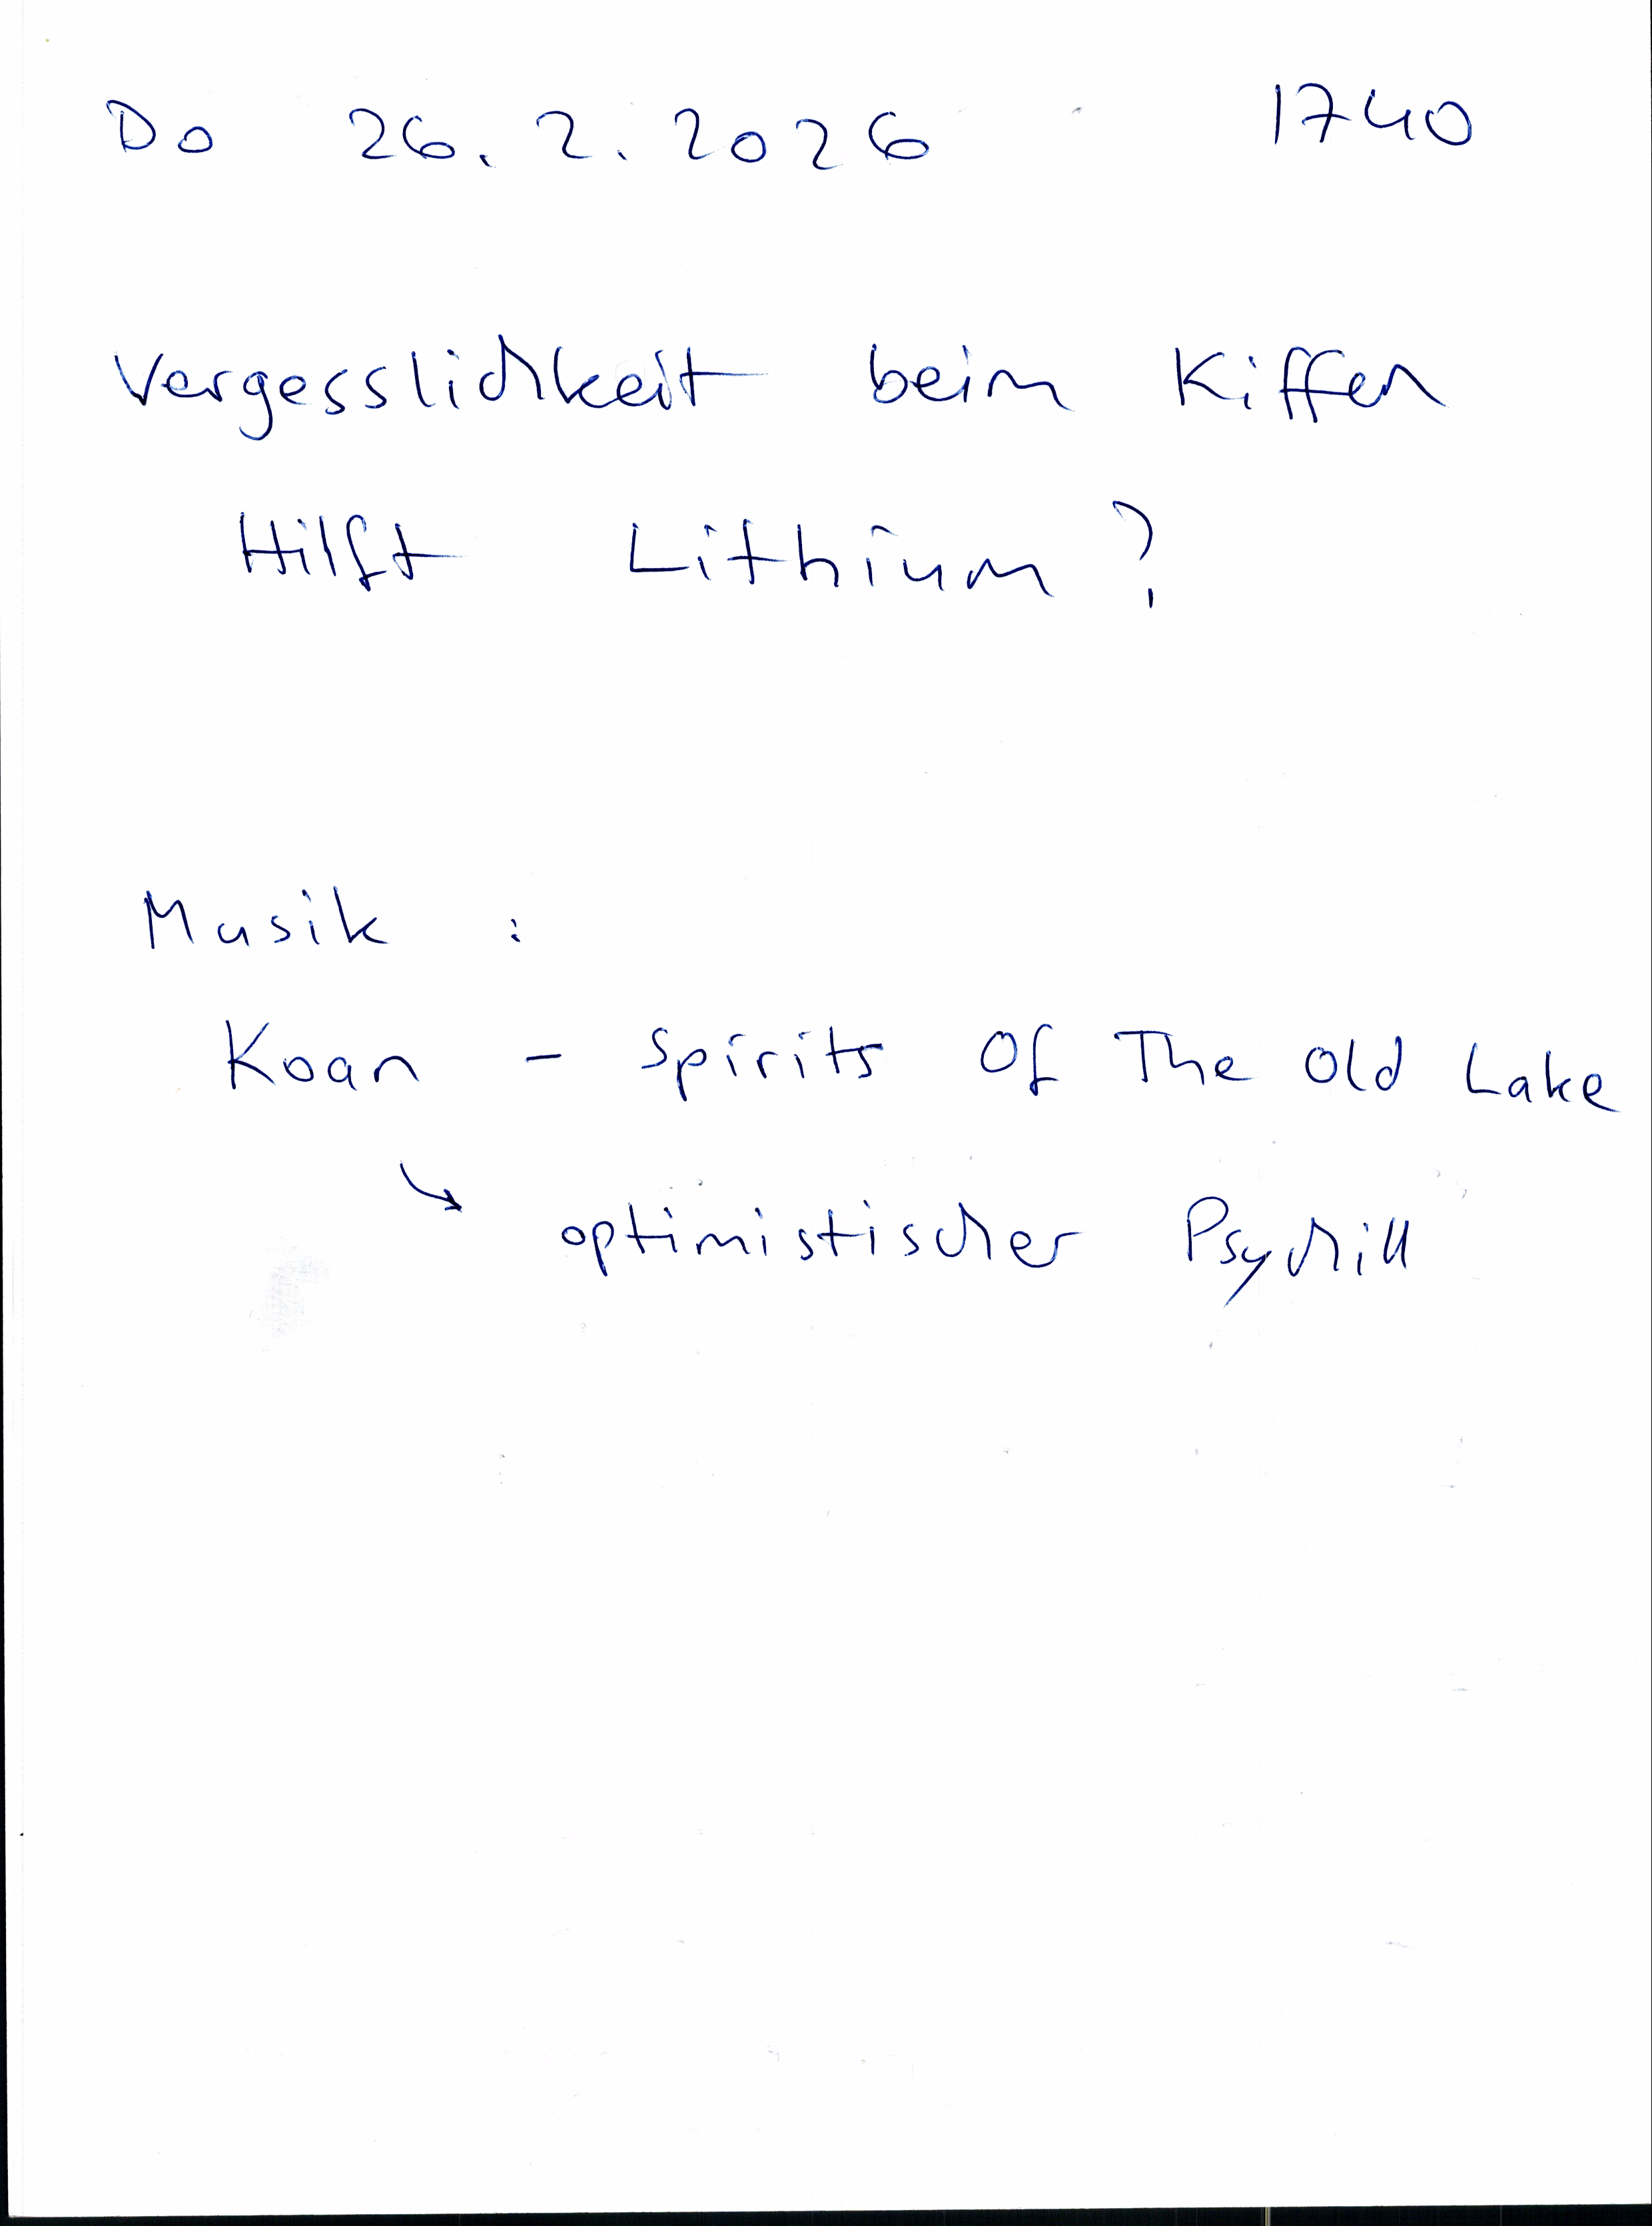 Do 26.2.2026 1740
Vergesslichkeit beim Kiffen
Hilft Lithium?
Musik :
Koan - Spirits Of The Old Lake
↘ optimistischer Psychill